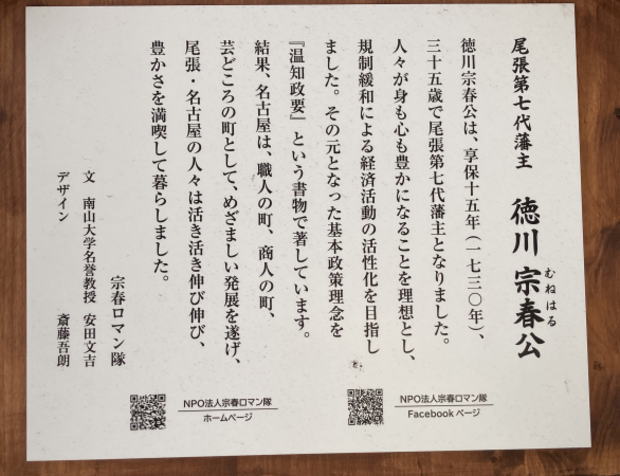 尾張第七代藩主 徳川 宗春公
むねはる
徳川宗春公は、享保十五年(一七三〇年)、
三十五歳で尾張第七代藩主となりました。
人々が身も心も豊かになることを理想とし、
規制緩和による経済活動の活性化を目指し
ました。その元となった基本政策理念を
『温知政要』という書物で著しています。
結果、名古屋は、職人の町、商人の町、
芸どころの町として、めざましい発展を遂げ、
尾張・名古屋の人々は活き活き伸び伸び、
豊かさを満喫して暮らしました。
宗春ロマン隊
文 南山大学名誉教授 安田文吉
デザイン 斎藤吾朗
NPO法人宗春ロマン隊
ホームページ
NPO法人宗春ロマン隊
Facebookページ